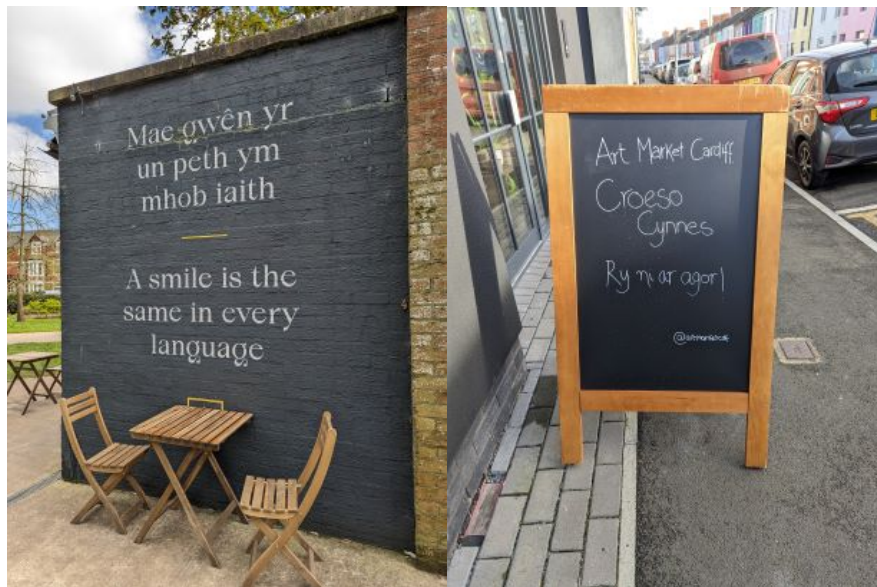 Mae gwên yr
un peth ym
mhob iaith
A smile is the
same in every
language
Art Market Cardiff
Croeso
Cynnes
Ry ni ar agor!